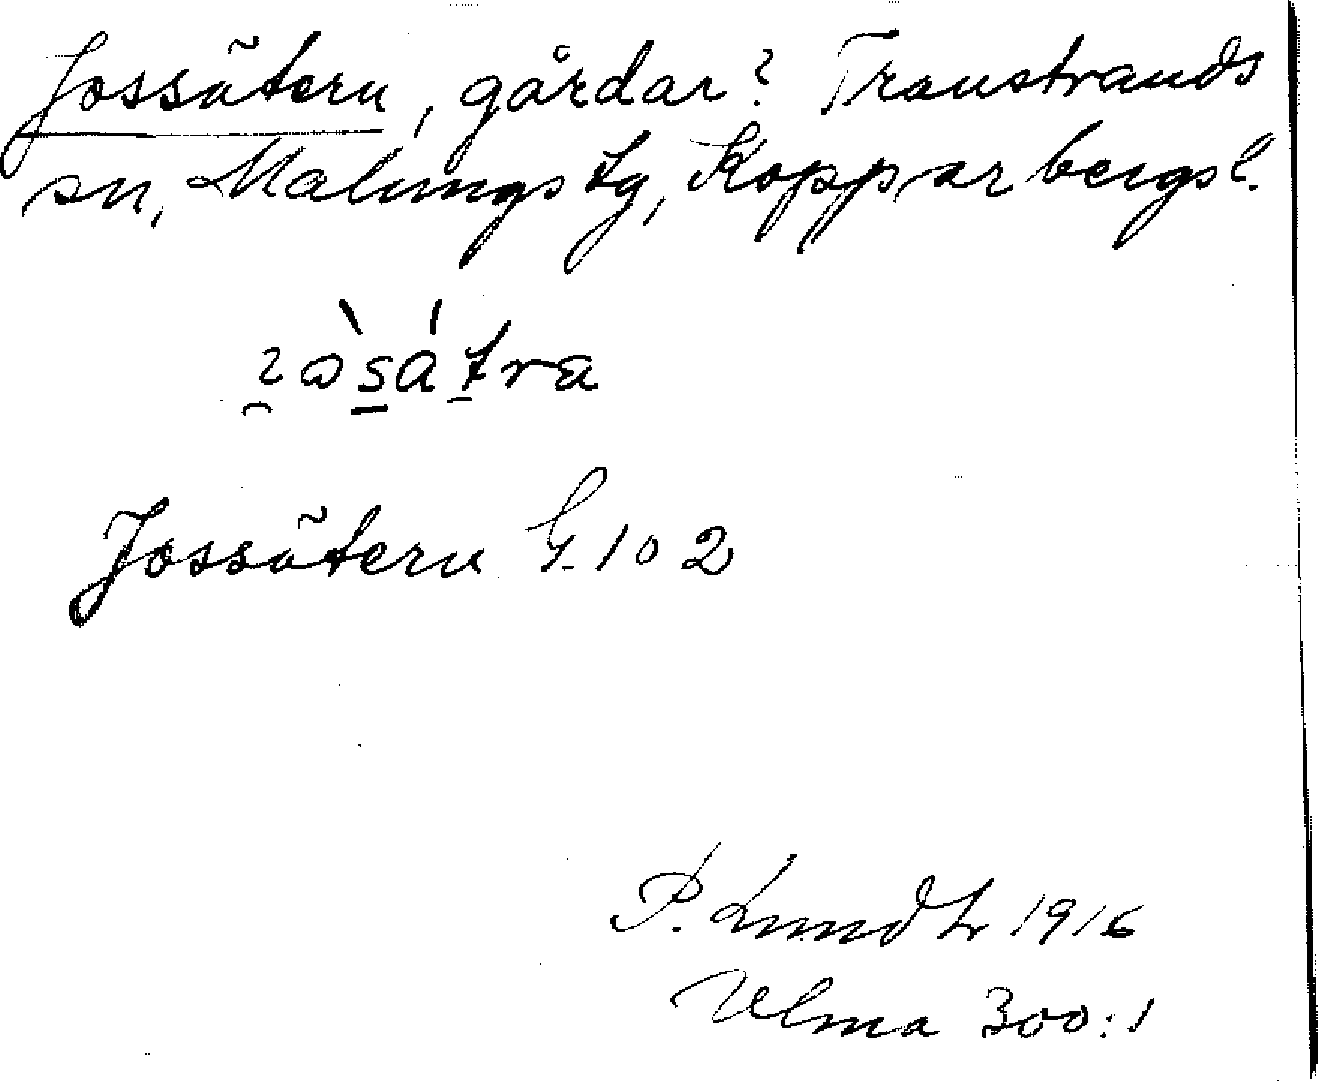 Jossätern, gårdar? Transtrands
sn, Malungs tg, Kopparbergs l.
Jossätern G. 102
P. Lundh 1916
Ulma 300:1